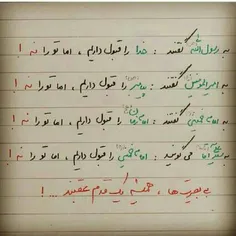 به رسول الله گفتند : خدا را قبول داریم ، اما تو را نه !
به امیرالمؤمنین گفتند : پیامبر را قبول داریم ، اما تو را نه !
به امام خمینی گفتند : امام زمان را قبول داریم ، اما تو را نه !
به می گویند : امام خمینی را قبول داریم ، اما تو را نه !
بی بصیرت ها ، همیشه یک قدم عقبند ... !